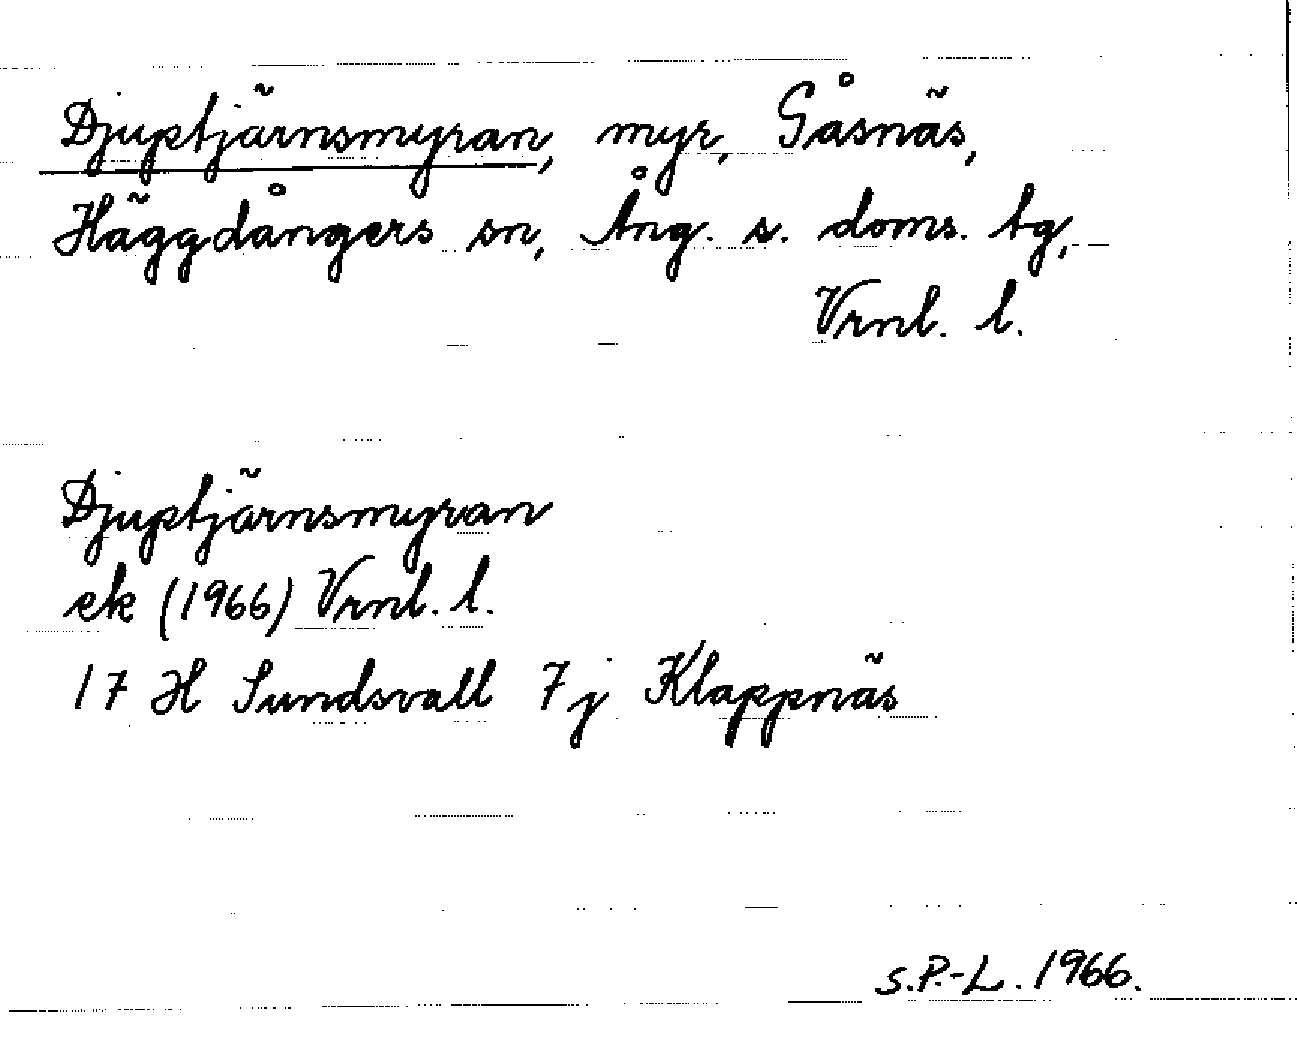 Djuptjärnsmyran, myr, Gåsnäs,
Häggdångers sn, Ång. s. doms. tg,
Vrnl. l.
Djuptjärnsmyran
ek (1966) Vrnl. l.
17 H Sundsvall 7j Klappnäs
S.P.-L. 1966.